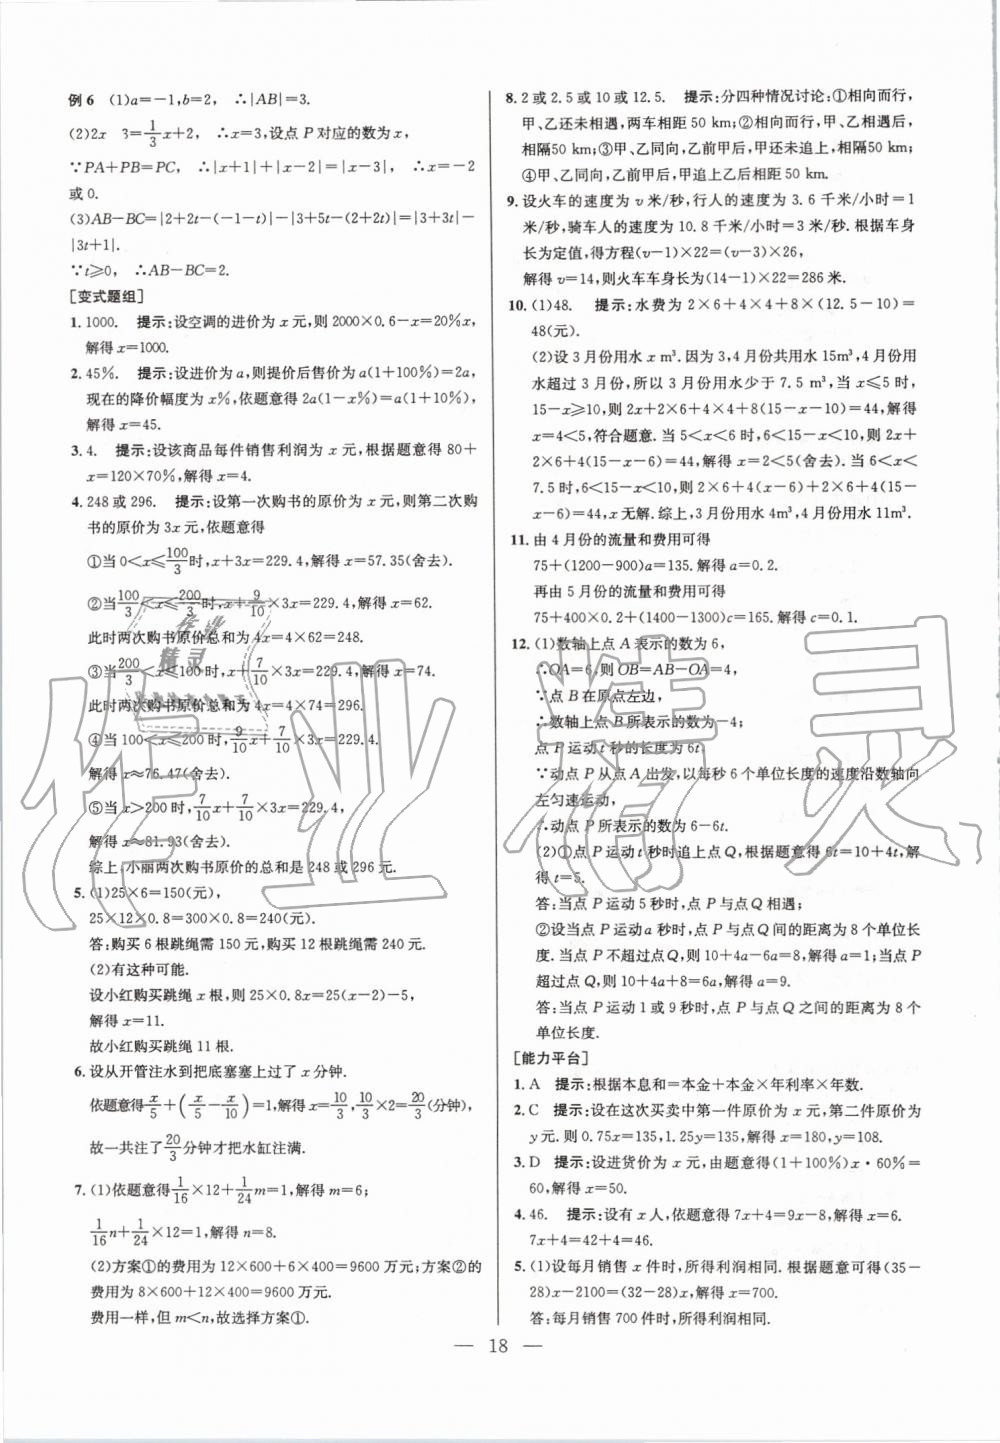 例6 (1)a=-1,b=2, ∴|AB|=3.
(2)2x 3=1/3x+2, ∴x=3,设点 P 对应的数为 x,
∵PA+PB=PC, ∴|x+1|+|x-2|=|x-3|, ∴x=-2
或0.
(3)AB-BC=|2+2t-(-1-t)|-|3+5t-(2+2t)|=|3+3t|-
|3t+1|.
∵t≥0, ∴AB-BC=2.
[变式题组]
1. 1000. 提示:设空调的进价为 x 元,则 2000×0.6-x=20%x,
解得 x=1000.
2. 45%. 提示:设进价为 a,则提价后售价为 a(1+100%)=2a,
现在的降价幅度为 x%,依题意得 2a(1-x%)=a(1+10%),
解得 x=45.
3. 4. 提示:设该商品每件销售利润为 x 元,根据题意得 80+
x=120×70%,解得 x=4.
4. 248 或 296. 提示:设第一次购书的原价为 x 元,则第二次购
书的原价为 3x 元,依题意得
①当 0<x≤100/3时,x+3x=229.4,解得 x=57.35(舍去).
②当100/3<x≤200/3时,x+9/10×3x=229.4,解得 x=62.
此时两次购书原价总和为 4x=4×62=248.
③当200/3<x≤100 时,x+7/10×3x=229.4,解得 x=74.
此时两次购书原价总和为 4x=4×74=296.
④当 100<x≤200 时,9/10x+7/10×3x=229.4,
解得 x≈76.47(舍去).
⑤当 x>200 时,7/10x+7/10×3x=229.4,
解得 x≈81.93(舍去).
综上,小丽两次购书原价的总和是 248 或 296 元.
5. (1)25×6=150(元),
25×12×0.8=300×0.8=240(元).
答:购买 6 根跳绳需 150 元,购买 12 根跳绳需 240 元.
(2)有这种可能.
设小红购买跳绳 x 根,则 25×0.8x=25(x-2)-5,
解得 x=11.
故小红购买跳绳 11 根.
6. 设从开管注水到把底塞塞上过了 x 分钟.
依题意得x/5+(x/5-x/10)=1,解得 x=10/3,10/3×2=20/3(分钟),
故一共注了20/3分钟才把水缸注满.
7. (1)依题意得1/16×12+1/24m=1,解得 m=6;
1/16n+1/24×12=1,解得 n=8.
(2)方案①的费用为 12×600+6×400=9600 万元;方案②的
费用为 8×600+12×400=9600 万元.
费用一样,但 m<n,故选择方案①.
8. 2 或 2.5 或 10 或 12.5. 提示:分四种情况讨论:①相向而行,
甲、乙还未相遇,两车相距 50 km;②相向而行,甲、乙相遇后,
相隔50 km;③甲、乙同向,乙前甲后,甲还未追上乙,相隔50 km;
④甲、乙同向,乙前甲后,甲追上乙后相隔 50 km.
9. 设火车的速度为 v 米/秒,行人的速度为 3.6 千米/小时=1
米/秒,骑车人的速度为 10.8 千米/小时=3 米/秒.根据车身
长为定值,得方程(v-1)×22=(v-3)×26,
解得 v=14,则火车车身长为(14-1)×22=286 米.
10. (1)48. 提示:水费为 2×6+4×4+8×(12.5-10)=
48(元).
(2)设 3 月份用水 x m³.因为 3,4 月份共用水 15m³,4 月份用
水超过 3 月份,所以 3 月份用水少于 7.5 m³,当 x≤5 时,
15-x≥10,则 2x+2×6+4×4+8(15-x-10)=44,解得
x=4<5,符合题意.当 5<x≤6 时,6<15-x<10,则 2x+
2×6+4(15-x-6)=44,解得 x=2<5(舍去).当 6<x<
7.5 时,6<15-x<10,则 2×6+4(x-6)+2×6+4(15-x
-6)=44,x 无解.综上,3 月份用水 4m³,4 月份用水 11m³.
11. 由 4 月份的流量和费用可得
75+(1200-900)a=135.解得 a=0.2.
再由 5 月份的流量和费用可得
75+400×0.2+(1400-1300)c=165.解得 c=0.1.
12. (1)数轴上点 A 表示的数为 6,
∴OA=6,则 OB=AB-OA=4,
∵点 B 在原点左边,
∴数轴上点 B 所表示的数为-4;
点 P 运动 t 秒的长度为 6t,
∵动点 P 从点 A 出发,以每秒 6 个单位长度的速度沿数轴向
左匀速运动,
∴动点 P 所表示的数为 6-6t.
(2)①点 P 运动 t 秒时追上点 Q,根据题意得 6t=10+4t,解
得 t=5.
答:当点 P 运动 5 秒时,点 P 与点 Q 相遇;
②设当点 P 运动 a 秒时,点 P 与点 Q 间的距离为 8 个单位长
度.当点 P 不超过点 Q,则 10+4a-6a=8,解得 a=1;当点 P
超过点 Q,则 10+4a+8=6a,解得 a=9.
答:当点 P 运动 1 或 9 秒时,点 P 与点 Q 之间的距离为 8 个
单位长度.
[能力平台]
1. A 提示:根据本息和=本金+本金×年利率×年数.
2. C 提示:设在这次买卖中第一件原价为 x 元,第二件原价为
y 元.则 0.75x=135,1.25y=135,解得 x=180,y=108.
3. D 提示:设进货价为 x 元,由题意得(1+100%)x·60%=
60,解得 x=50.
4. 46. 提示:设有 x 人,依题意得 7x+4=9x-8,解得 x=6.
7x+4=42+4=46.
5. (1)设每月销售 x 件时,所得利润相同.根据题意可得(35-
28)x-2100=(32-28)x,解得 x=700.
答:每月销售 700 件时,所得利润相同.
— 18 —
作业精灵
作业
精灵